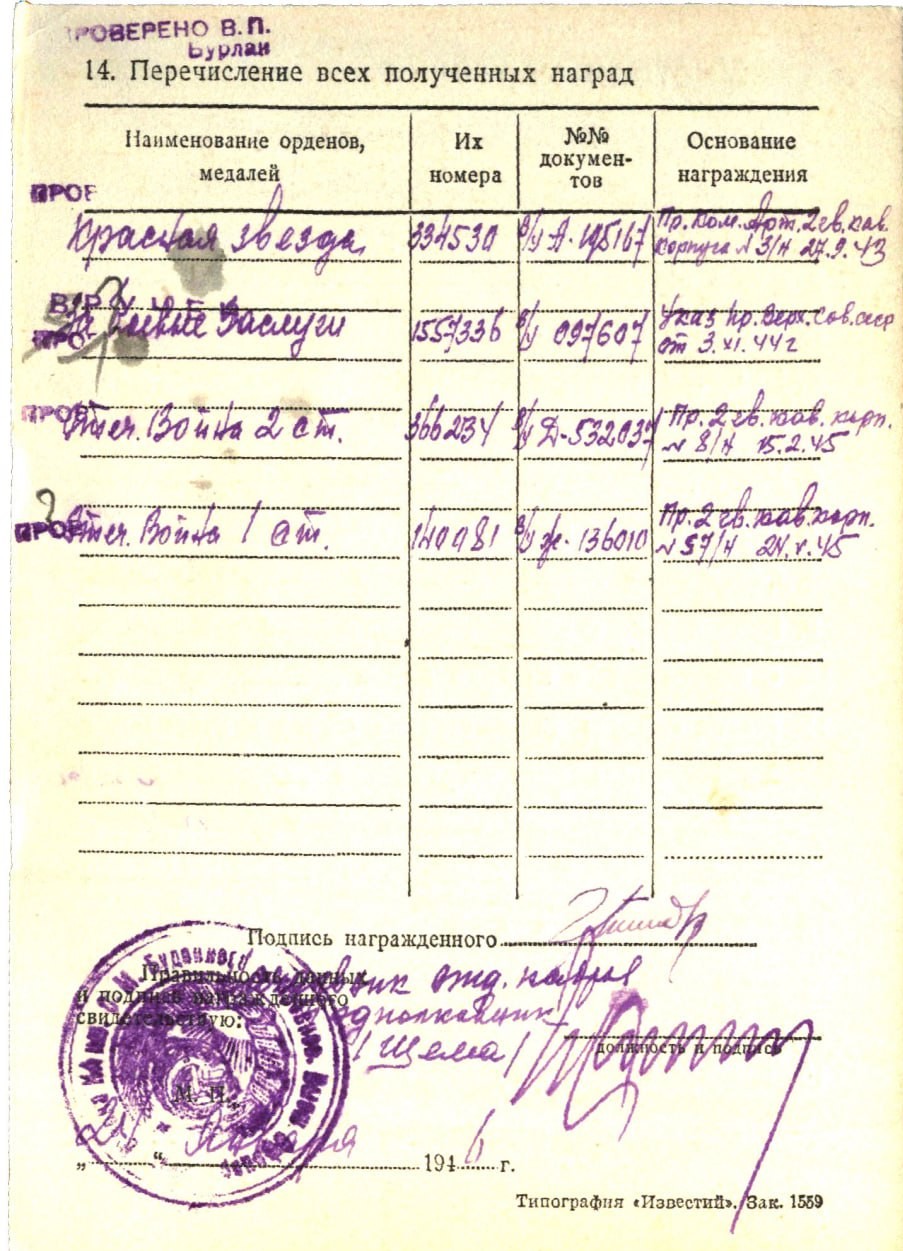 ПРОВЕРЕНО В.П.
Бурлай
14. Перечисление всех полученных наград
Наименование орденов, медалей
Их номера
№№ документов
Основание награждения
ПРОВ
Красная звезда 334530 в/у А-195167 Пр. Ком. Арт. 2 гв. кав.
корпуса № 3/н 27.9.43
За боевые заслуги 1557336 в/у 097607 Указ Пр. Верх. Сов. ссср
ПРОВ
от 3.XI.44 г
ПРОВ
Отеч. Война 2 ст. 366234 в/у Д-532037 Пр. 2 гв. кав. корп.
№ 8/н 15.2.45
2
ПРОВ
Отеч. Война 1 ст. 140081 в/у 136010 Пр. 2 гв. кав. корп.
№ 57/н 24.V.45
Подпись награжденного
Правильность данных
и подписи награжденного
свидетельствую:
отд. кадров
подполковник
/Щема/
должность и подпись
М. П.
„ “ Января 1946 г.
Типография «Известий». Зак. 1559